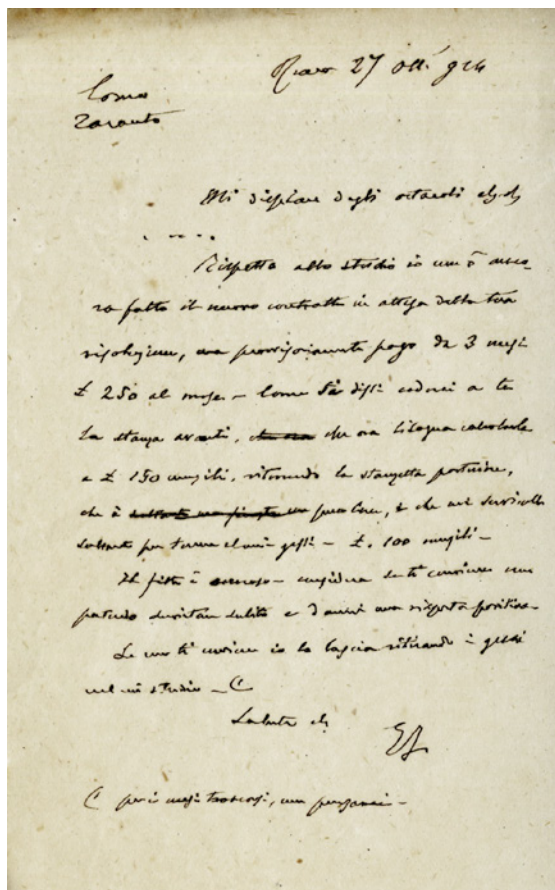 27 Ott. 924
Como
Taranto
Mi dispiace degli ostacoli
.....
Rispetto allo studio io non ò anco-
ra fatto il nuovo contratto in attesa della tua
risoluzione, ma provvisoriamente pago da 3 mesi
£ 250 al mese – Come ti dissi cederei a te
la stanza avanti, che ora bisogna calcolarla
a £ 150 mensili, ritenendo la stanzetta posteriore,
che è senza luce, e che mi
soltanto per tenere el miei gessi – £. 100 mensili –
Il fitto è oneroso – considera se ti conviene non
potendo subito e dammi una risposta positiva
Se non ti conviene io la lascio ritirando i gessi
nel mio studio – (
Saluti
( per i mesi trascorsi, non pensarci –